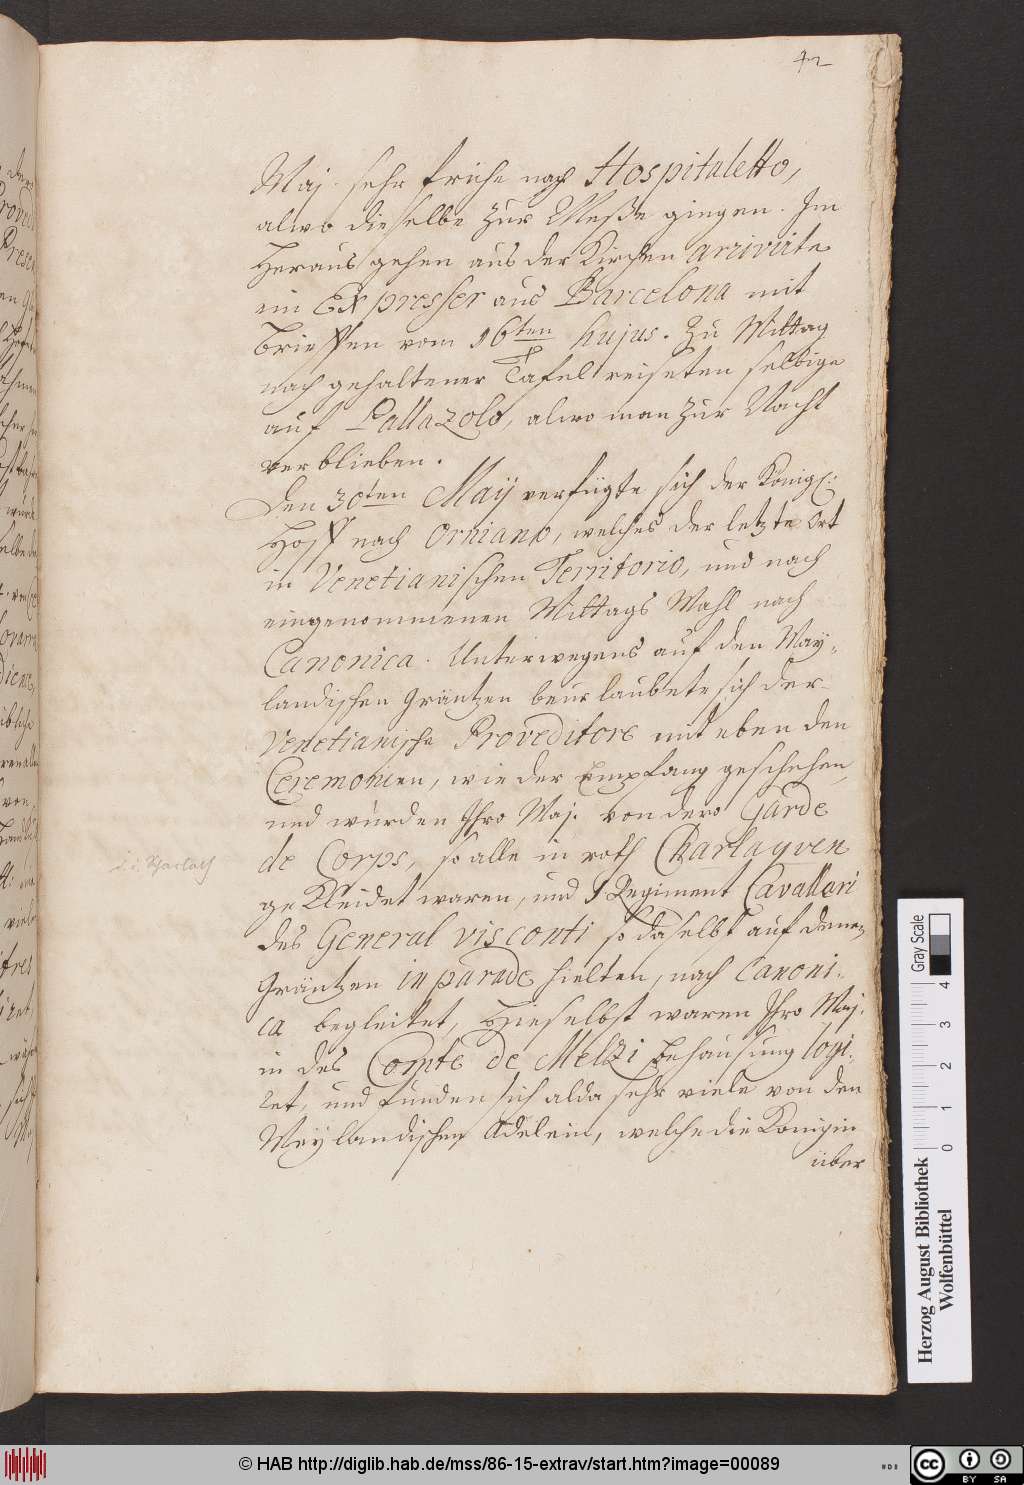 42
Maj. sehr frühe nach Hospitaletto,
alwo dieselbe zur Meße giengen. Im
Herausgehen aus der Kirchen arrivirte
ein Expresser aus Barcelona mit
Brieffen vom 16ten hujus. Zu Mittag
nach gehaltener Tafel reiseten selbige
auf Pallazolo, alwo man zur Nacht
verblieben.
Den 30ten Maij verfügte sich der Königl:
Hoff nach Orniano, welches der letzte Ort
in Venetianischen Territorio, und nach
eingenommenen Mittags Mahl nach
Canonica. Unterwegens auf den May-
landischen Gräntzen beurlaubete sich der
Venetianische Proveditore mit eben den
Ceremonien, wie der Empfang geschehen,
und wurden Ihro Maj. von dero Garde
de Corps, so alle in roth Charlaqven
gekleidet waren, und 1 Regiment Cavallari
i. e. Scharlach
des General visconti so daselbst auf denen
Gräntzen in parade hielten, nach Canoni-
ca begleitet, Hieselbst waren Ihro Maj.
in des Comte de Melzi Behausung logi-
ret, und funden sich alda sehr viele von den
Meylandischen Adel ein, welche die Königin
über
Herzog August Bibliothek
Wolfenbüttel
Gray Scale
0 1 2 3 4
© HAB http://diglib.hab.de/mss/86-15-extrav/start.htm?image=00089
cc BY SA